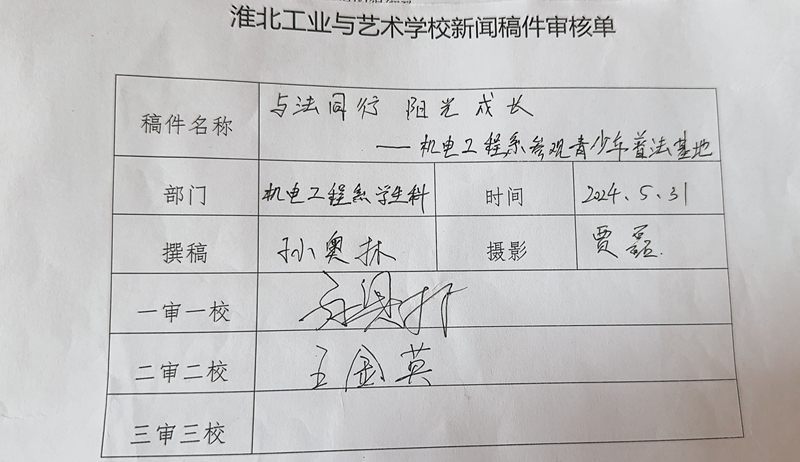 淮北工业与艺术学校新闻稿件审核单
稿件名称
与法同行 阳光成长
——机电工程系参观青少年普法基地
部门
机电工程系学生科
时间
2024.5.31
撰稿
孙奥林
摄影
贾磊
一审一校
二审二校
王金英
三审三校